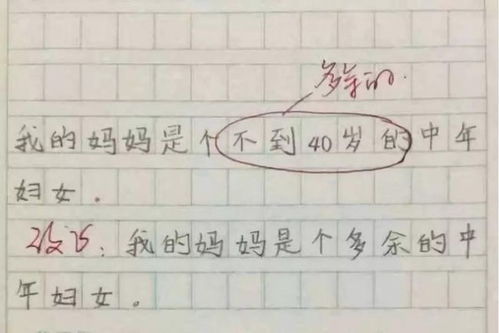 多余的.
我的妈妈是个不到40岁的中年
妇女.
改巧:我的妈妈是个多余的中
年妇女。